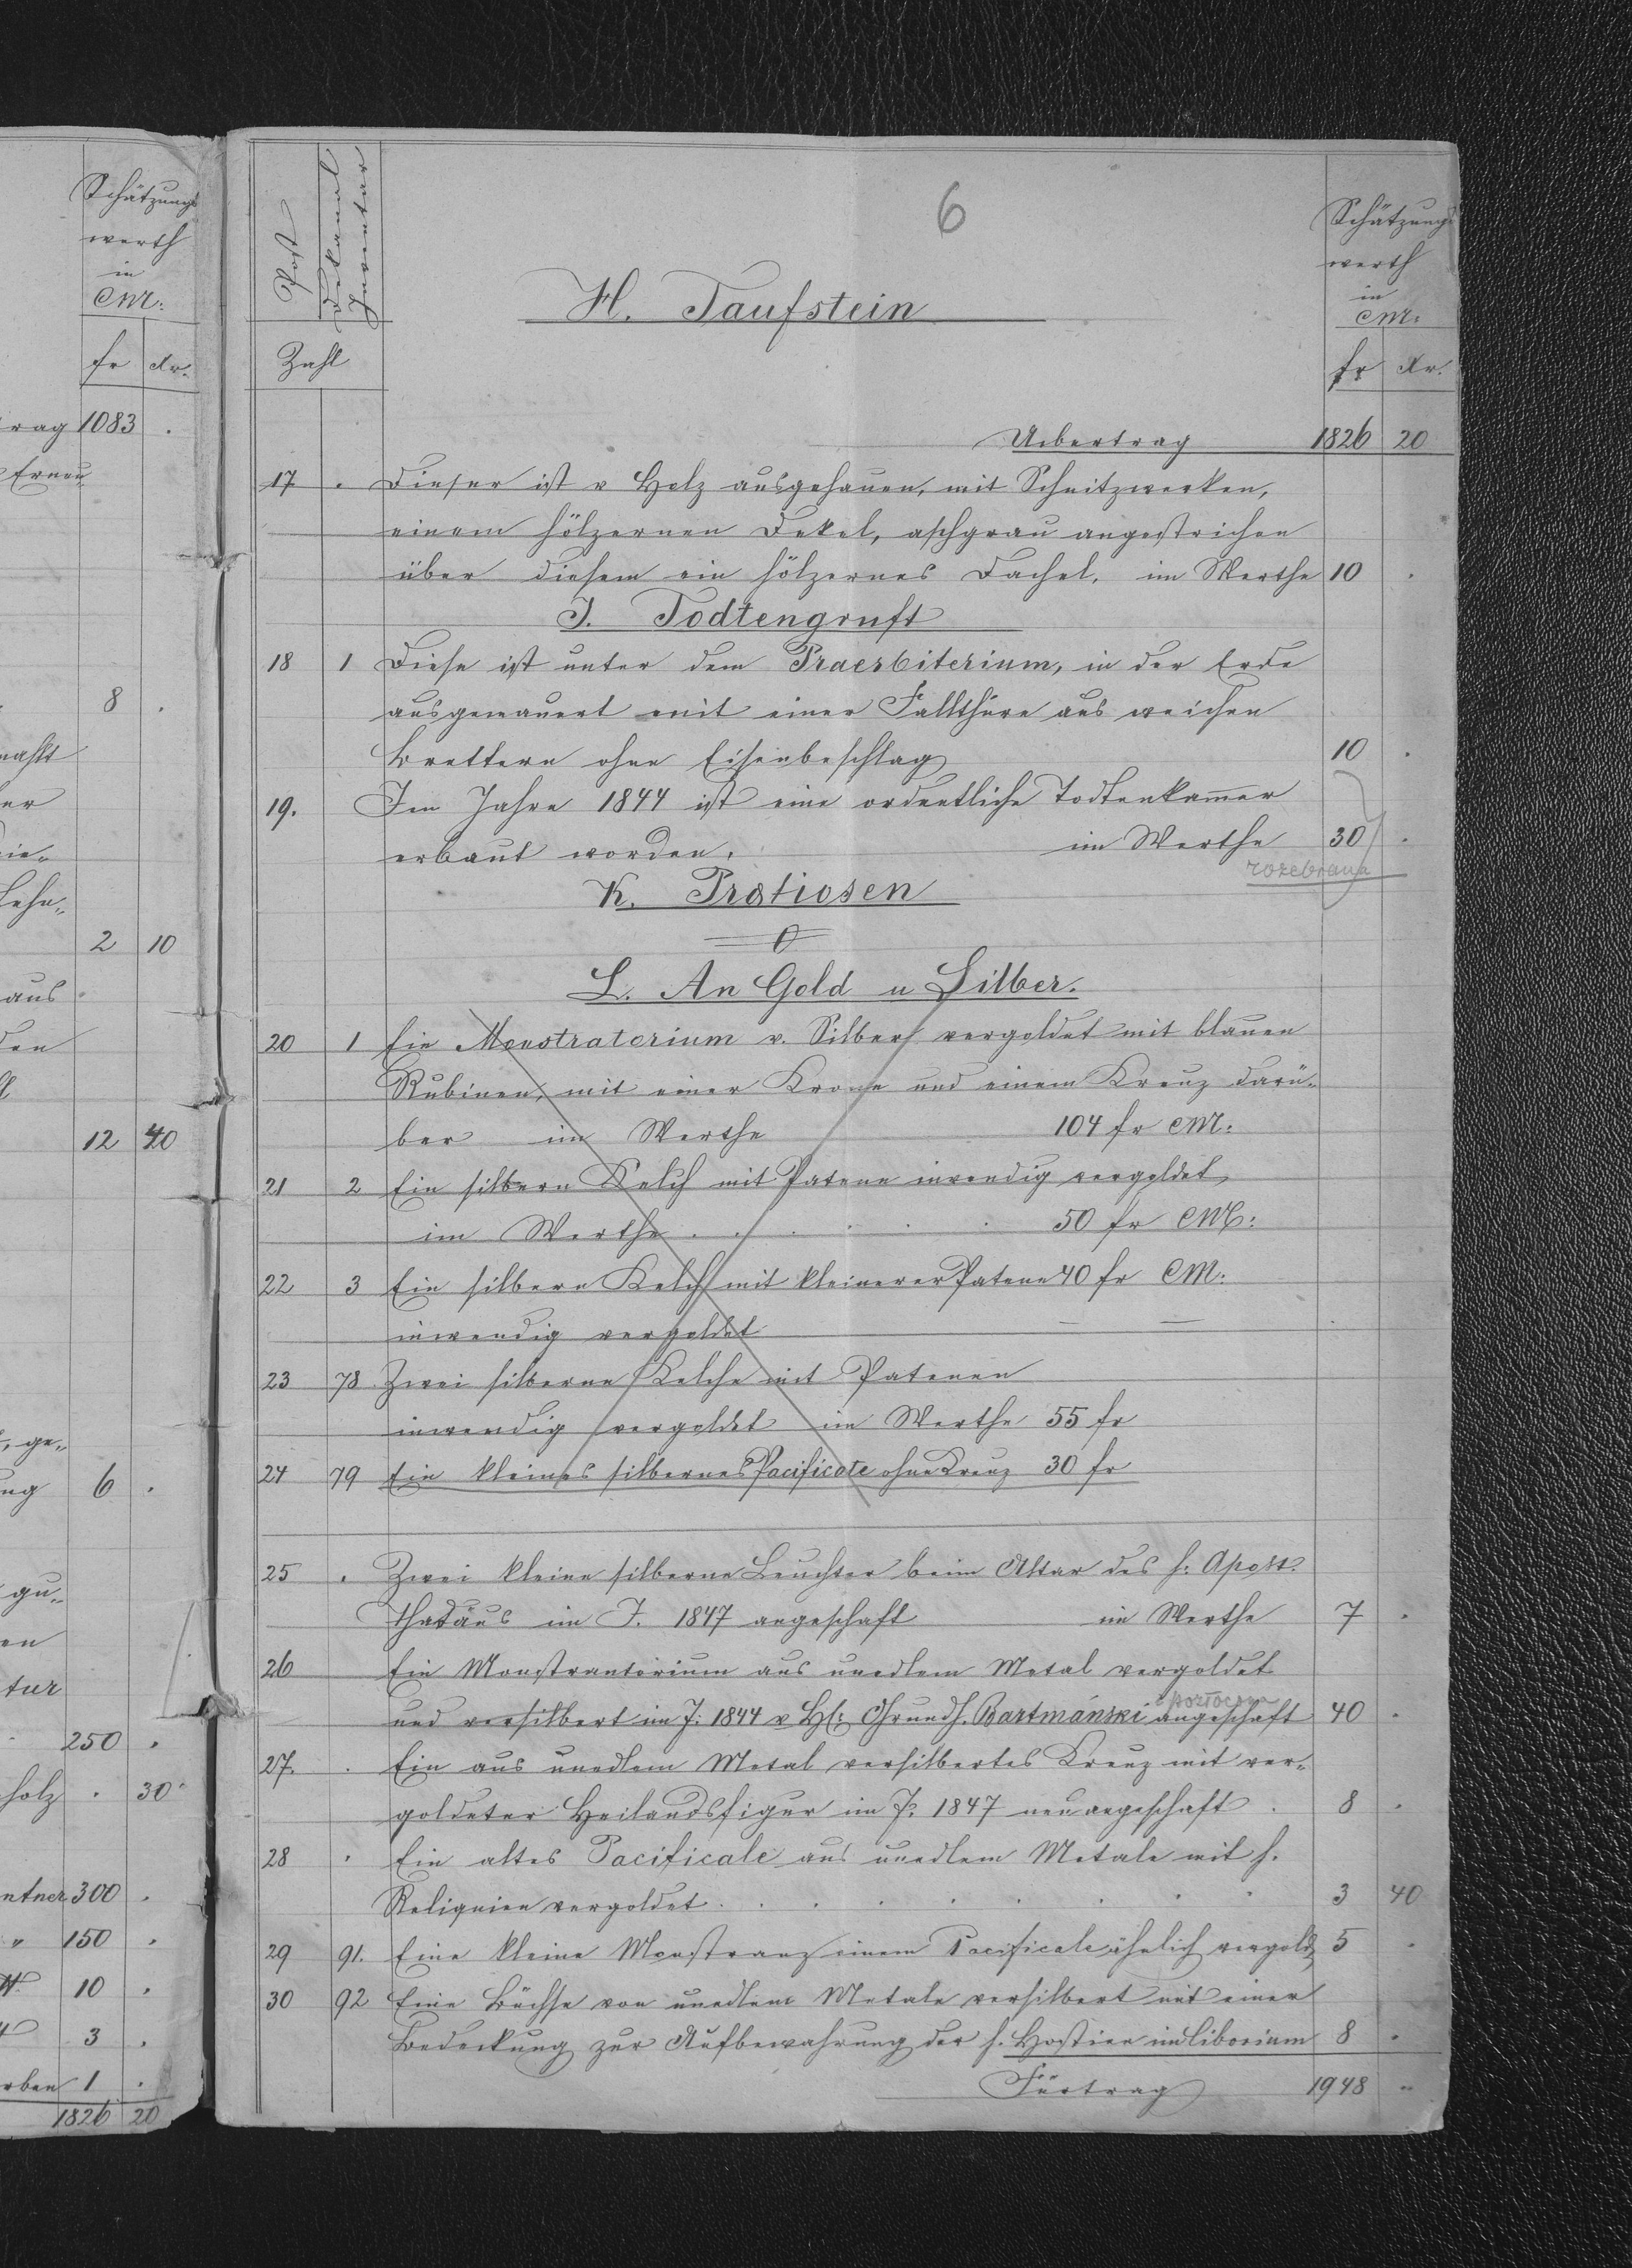 Schätzungs
werth
in
CM:
fr xr.
rag 1083 .
Erneu
8 .
mahlt
er
Lehn„
2 10
aus
den
12 40
, ge„
ng 6 .
gu„
en
tur
250 .
holz . 30
ntner 300 .
" 150 .
10 .
3 .
rben 1 .
1826 20
Post
Dekanal
Inventar
Zahl
6
H. Taufstein
Schätzungs
werth
in
CM:
fr xr.
Uebertrag 1826 20
17 . Dieser ist v Holz ausgehauen, mit Schnitzwerken,
einem hölzernen Dekel, aschgrau angestrichen
über diesem ein hölzernes Dachel, im Werthe 10 .
J. Todtengruft
18 1 Diese ist unter dem Praesbiterium, in der Erde
ausgemauert mit einer Fallthüre aus weichen
Brettern ohne Eisenbeschlag 10 .
19. Im Jahre 1844 ist eine ordentliche Todtenkammer
erbaut worden. im Werthe 30 .
rozebrana
K. Pratiosen
L. An Gold u Silber.
20 1 Ein Monstratorium v. Silber vergoldet mit blauen
Rubinen, mit einer Krone und einem Kreuz darü„
ber im Werthe 104 fr CM:
21 2 Ein silbern Kelch mit Patene inwendig vergoldet
im Werthe . . . . . 50 fr CM:
22 3 Ein silbern Kelch mit kleinerer Patene 40 fr CM:
inwendig vergoldet
23 78 Zwei silberne Kelche mit Patenen
inwendig vergoldet im Werthe 55 fr
24 79 Ein kleines silbernes Pacificale ohne Kreuz 30 fr
25 . Zwei kleine silberne Leuchter beim Altar des h: Apost.
Thadäus im J. 1847 angeschaft im Werthe 7 .
26 Ein Monstrantorium aus unedlem Metal vergoldet
und versilbert im J: 1844 v H: Grundh. Bartmánski angeschaft 40 .
27. . Ein aus unedlem Metal versilbertes Kreuz mit ver„
goldeter Heilandsfigur im J. 1847 neu angeschaft . 8 .
28 . Ein altes Pacificale aus unedlem Metale mit h.
Reliquien vergoldet . . . . . . . 3 40
29 91. Eine kleine Monstranz einem Pacificale ähnlich vergold 5 .
30 92 Eine Büchse von unedlem Metale versilbert mit einer
Bedeckung zur Aufbewahrung der h. Hostien im Ciborium 8 .
Fürtrag 1948 "